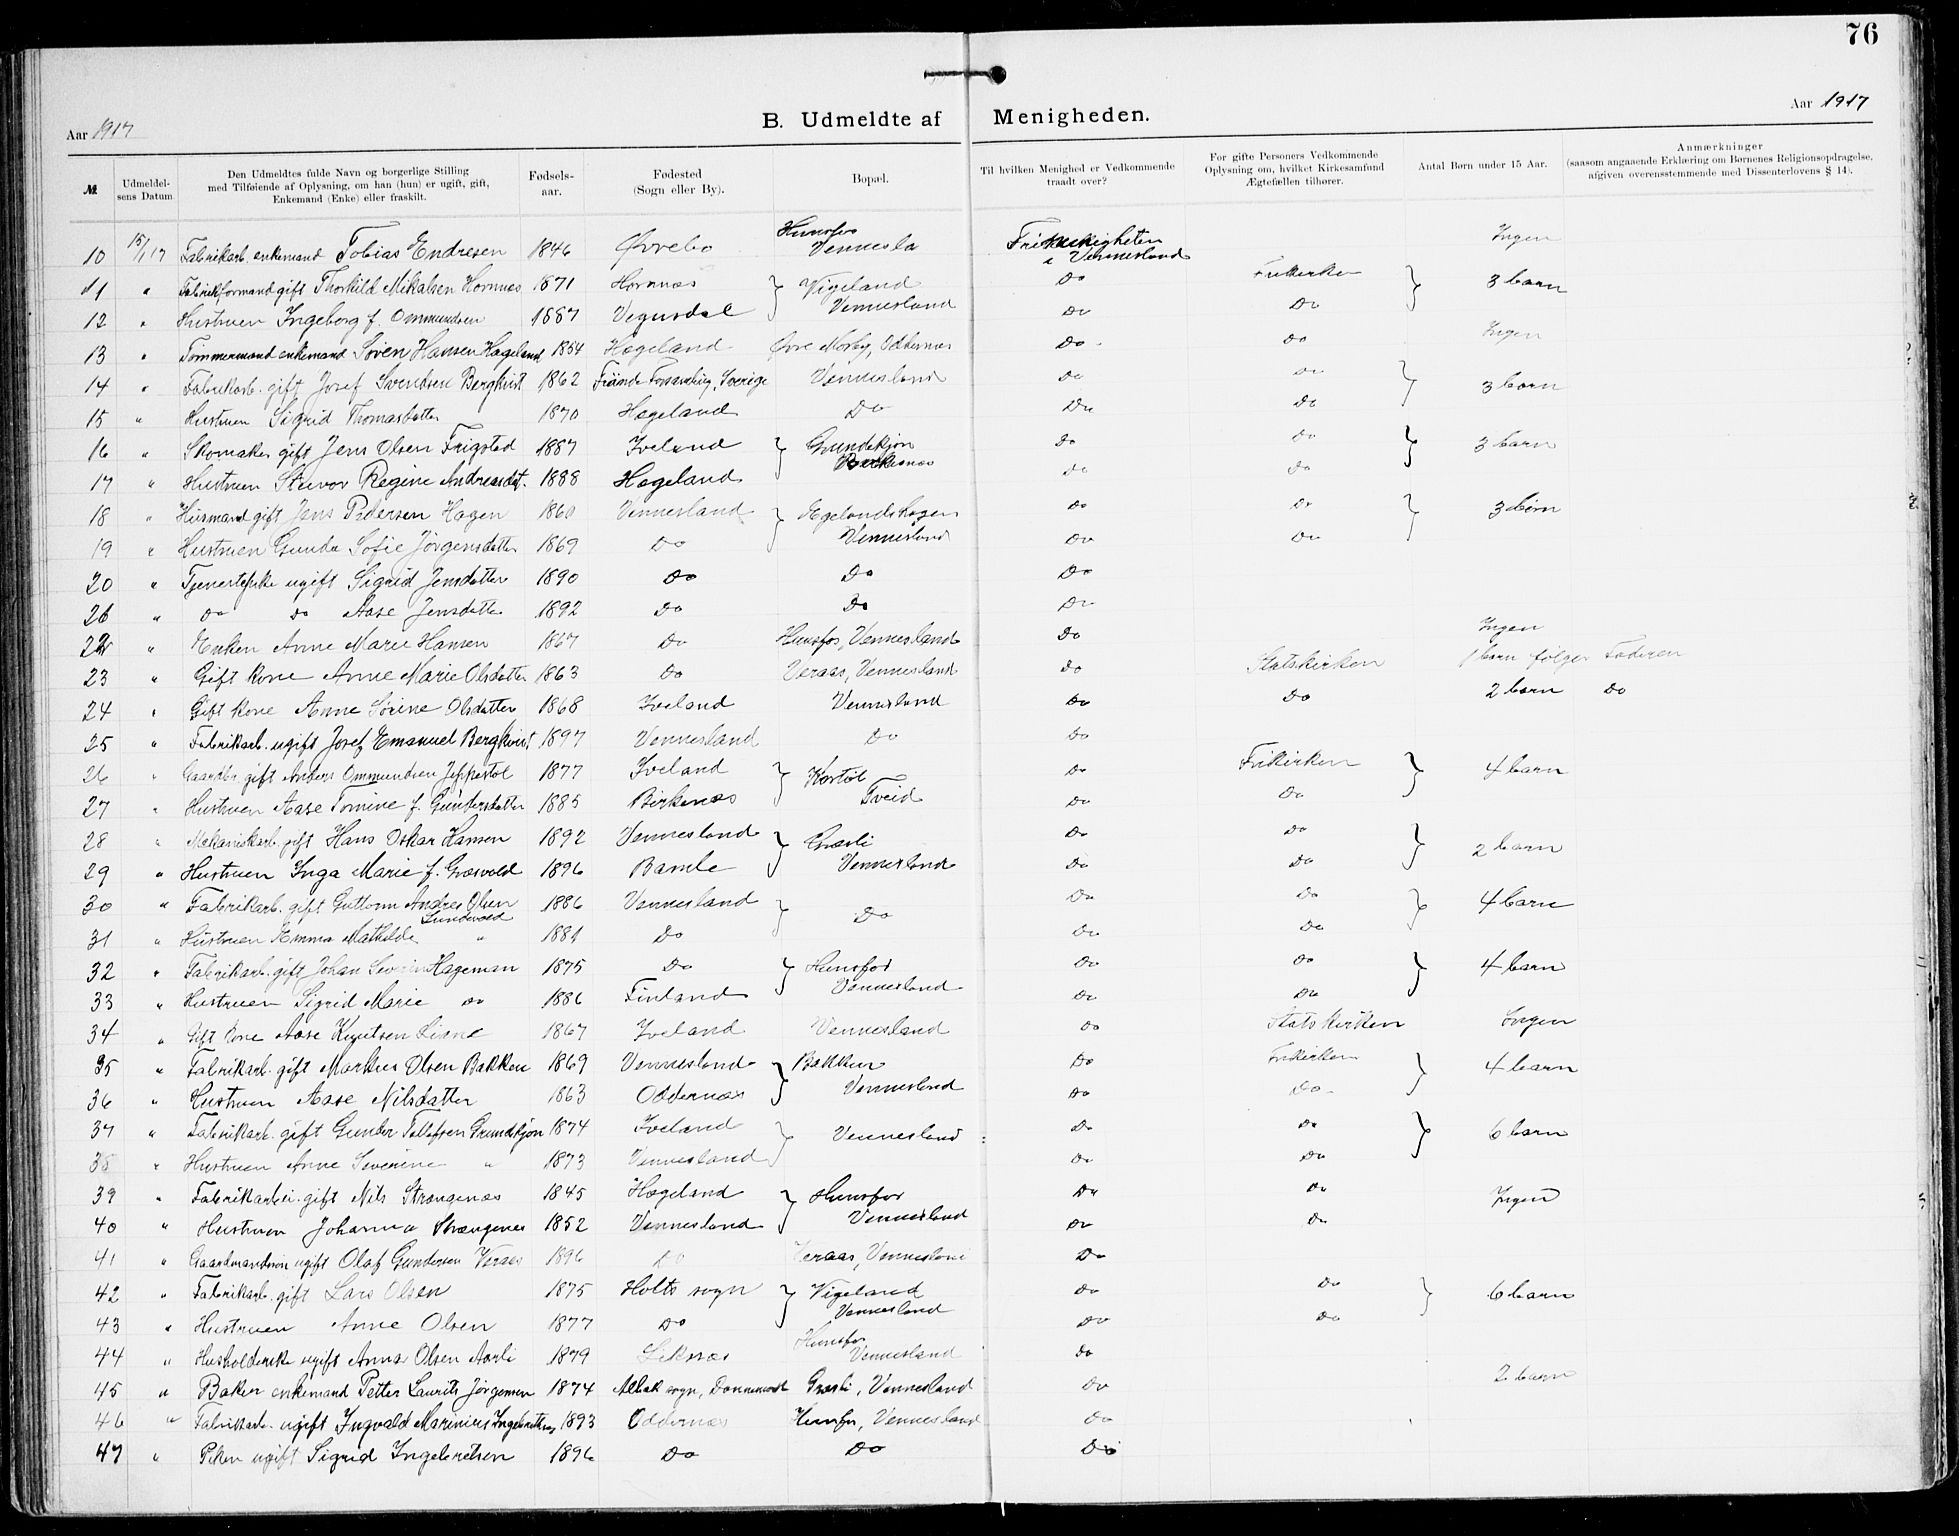 76
Aar 1917
B. Udmeldte af Menigheden.
Aar 1917
№
Udmeldelsens Datum
Den Udmeldtes fulde Navn og borgerlige Stilling med Tilføiende af Oplysning, om han (hun) er ugift, gift, Enkemand (Enke) eller fraskilt.
Fødselsaar.
Fødested (Sogn eller By).
Bopæl.
Til hvilken Menighed er Vedkommende traadt over?
For gifte Personers Vedkommende Oplysning om, hvilket Kirkesamfund Ægtefællen tilhører.
Antal Børn under 15 Aar.
Anmærkninger (saasom angaaende Erklæring om Børnenes Religionsopdragelse, afgiven overensstemmende med Dissenterlovens § 14).
10 15/1 17 Fabrikarb. enkemand Tobias Endresen 1846 Øvrebo Hunsfos Vennesla Frimenigheten i Vennesland Ingen
11 " Fabrikformand gift Thorkild Mikalsen Hornnes 1871 Hornnes } Vigeland Do Frikirken } 3 barn
12 " Hustruen Ingeborg f. Ommundsen 1887 Vegusdal Vennesland Do Do
13 " Tømmermand enkemand Søren Hansen Hægeland 1854 Hægeland Øvre Mosby, Oddernes Do Do Ingen
14 " Fabrikarb. gift Josef Svendsen Bergkvist 1862 Sverige Vennesland Do Do } 3 barn
15 " Hustruen Sigrid Thomasdatter 1870 Hægeland Do Do Do
16 " Skomaker gift Jens Olsen Frigstad 1887 Iveland } Grundekjøn Do Do } 3 barn
17 " Hustruen Regine Andreasdat. 1888 Hægeland Birkenes Do Do
18 " Husmand gift Jens Pedersen Hagen 1860 Vennesland } Egelandshagen Do Do } 3 børn
19 " Hustruen Gunda Sofie Jørgensdatter 1869 Do Vennesland Do Do
20 " Tjenestepike ugift Sigrid Jensdatter 1890 Do Do Do
26 " Do Do Aase Jensdatter 1892 Do Do Do
22 " Enken Anne Marie Hansen 1867 Do Hunsfos, Vennesland Do Ingen
23 " Gift kone Anne Marie Olsdatter 1863 Do Veraas, Vennesland Do Statskirken 1 barn følger Faderen
24 " Gift kone Anne Sørine Olsdatter 1868 Iveland Vennesland Do Do 2 barn Do
25 " Fabrikarb. ugift Josef Emanuel Bergkvist 1897 Vennesland Do Do
26 " Gaardbr. gift Anders Ommundsen Jeppestøl 1877 Iveland } Kostøl Do Frikirken } 4 barn
27 " Hustruen Aase Tomine f. Gundersdatter 1885 Birkenes Tveid Do Do
28 " Mekaniskarb. gift Hans Oskar Hansen 1892 Vennesland } Grasli Do Do } 2 barn
29 " Hustruen Inga Marie f. Græsvold 1896 Bamle Vennesland Do Do
30 " Fabrikarb. gift Guttorm Andres Olsen 1886 Vennesland } Do Do Do } 4 barn
Lundevold
31 " Hustruen Emma Mathilde " 1881 Do Do Do
32 " Fabrikarb. gift Johan Severin Hageman 1875 Do } Hunsfos Do Do } 4 barn
33 " Hustruen Sigrid Marie do 1886 Finland Vennesland Do Do
34 " Gift kone Aase Knutsen 1867 Iveland Vennesland Do Statskirken Ingen
35 " Fabrikarb. gift Markus Olsen Bakken 1869 Vennesland } Bakken Do Frikirken } 4 barn
36 " Hustruen Aase Nilsdatter 1863 Oddernes Vennesland Do Do
37 " Fabrikarb. gift Gunder Tellefsen Grundekjøn 1874 Iveland } Vennesland Do Do } 6 barn
38 " Hustruen Anne Severine " 1873 Vennesland Do Do
39 " Fabrikarbei. gift Nils Strangenes 1845 Hægeland } Hunsfos Do Do Ingen
40 " Hustruen Johanna Strangenes 1852 Vennesland Vennesland Do Do
41 " Gaardmandssøn ugift Olaf Gundersen Veraas 1896 Do Veraas, Vennesland Do
42 " Fabrikarb. gift Lars Olsen 1875 Holts sogn } Vigeland Do Do } 6 barn
43 " Hustruen Anne Olsen 1877 Do Vennesland Do Do
44 " Husholderske ugift Anna Olsen Aarli 1879 Hunsfos Vennesland Do
45 " Baker enkemand Petter Laurits Jørgensen 1874 Albæk sogn, Danmark Graslí, Vennesland Do 2 barn
46 " Fabrikarb. ugift Ingvald Marinius Ingebretsen 1893 Oddernes Hunsfos, Vennesland Do
47 " Piken ugift Sigrid Ingebretsen 1896 Do Do Do